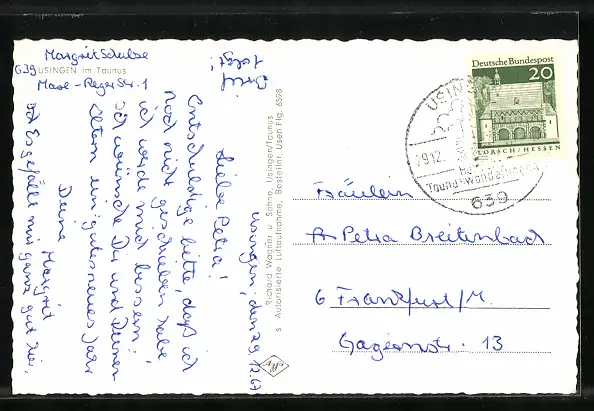 Margrit Schulze
639 USINGEN im Taunus
Max-Reger Str. 1
Brief
folgt!
Usingen, den 29.12.67
Liebe Petra!
Entschuldige bitte, daß ich
noch nicht geschrieben habe
ich werde mich bessern!
Ich wünsche Dir und Deinen
Eltern ein gutes neues Jahr
Deine Margrid
Es gefällt mir ganz gut hier.
Richard Wagner u. Söhne, Usingen/Taunus
Autorisierte Luftaufnahme, Bestellnr. Usen Flg. 6598
Deutsche Bundespost
20
LORSCH/HESSEN
USIN
29.12.
Taunus-Wandern
639
Fräulein
Petra Breitenbach
6 Frankfurt/M.
Gagernstr. 13